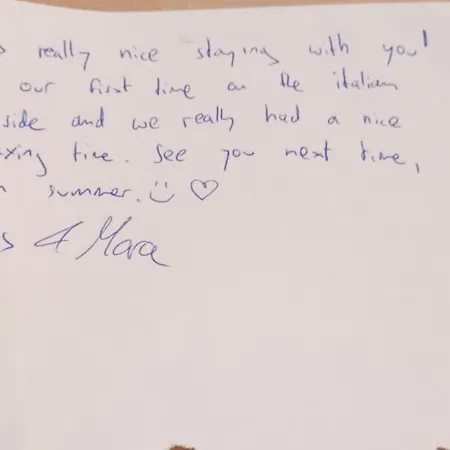 really nice staying with you!
our first time on the italian
side and we really had a nice
xing time. See you next time,
summer. :) ♡
s & Mara